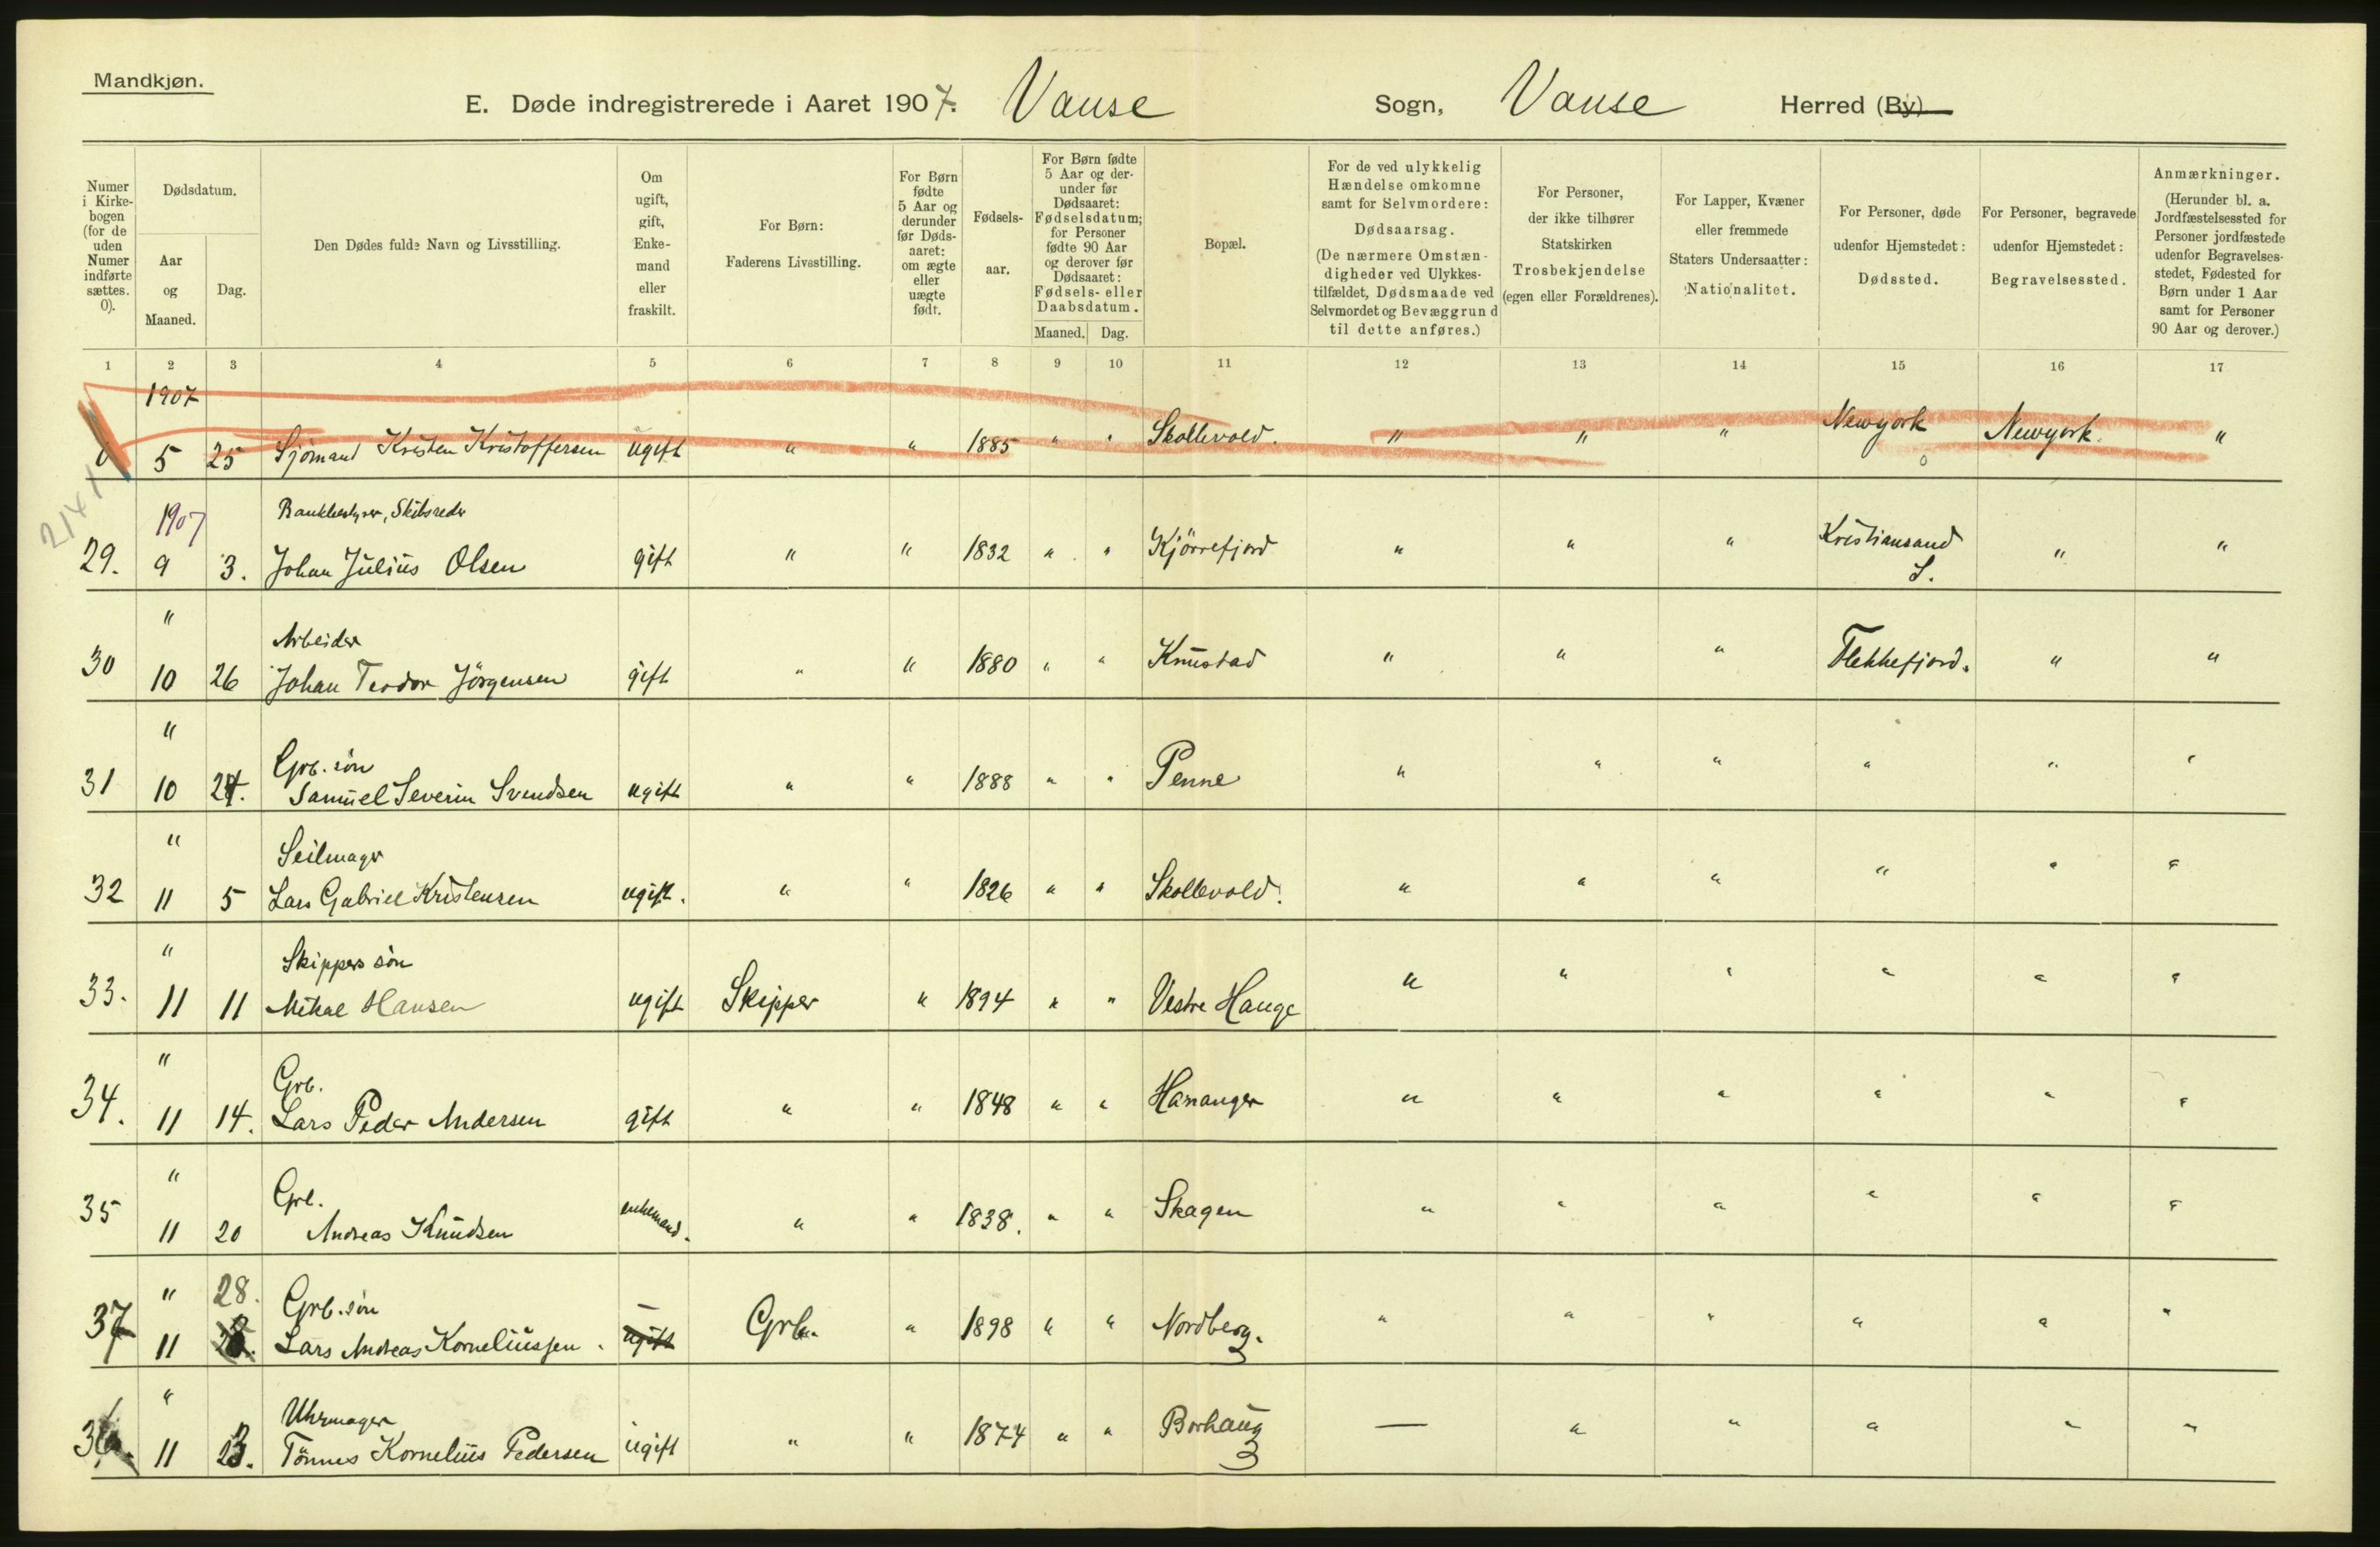 Mandkjøn.
E. Døde indregistrerede i Aaret 1907. Vanse Sogn, Vanse Herred (By)
Numer i Kirkebogen (for de uden Numer indførte sættes. 0).
Dødsdatum.
Aar og Maaned.
Dag.
Den Dødes fulde Navn og Livsstilling.
Om ugift, gift, Enkemand eller fraskilt.
For Børn: Faderens Livsstilling.
For Børn fødte 5 Aar og derunder før Dødsaaret: om ægte eller uægte født.
Fødselsaar.
For Børn fødte 5 Aar og derunder før Dødsaaret: Fødselsdatum; for Personer fødte 90 Aar og derover før Dødsaaret: Fødsels- eller Daabsdatum.
Maaned. Dag.
Bopæl.
For de ved ulykkelig Hændelse omkomne samt for Selvmordere: Dødsaarsag. (De nærmere Omstændigheder ved Ulykkestilfældet, Dødsmaade ved Selvmordet og Bevæggrund til dette anføres.)
For Personer, der ikke tilhører Statskirken Trosbekjendelse (egen eller Forældrenes).
For Lapper, Kvæner eller fremmede Staters Undersaatter: Nationalitet.
For Personer, døde udenfor Hjemstedet: Dødssted.
For Personer, begravede udenfor Hjemstedet: Begravelsessted.
Anmærkninger. (Herunder bl. a. Jordfæstelsessted for Personer jordfæstede udenfor Begravelsesstedet, Fødested for Børn under 1 Aar samt for Personer 90 Aar og derover.)
1 2 3 4 5 6 7 8 9 10 11 12 13 14 15 16 17
1907
0 5 25 Sjömand Kristen Kristoffersen ugift " " 1885 " " Skollevold. " " " Newyork Newyork. "
1907 Bankbestyrer, Skibsreder
29. 9 3. Johan Julius Olsen gift " " 1832 " " Kjörrefjord " " " Kristiansand S. " "
" Arbeider
30 10 26 Johan Teodor Jörgensen gift " " 1880 " " Knustad " " " Flekkefjord. " "
" Grb. sön
31 10 24. Samuel Severin Svendsen ugift " " 1888 " " Penne " " " " " "
" Seilmager
32 11 5 Lars Gabriel Kristensen ugift. " " 1826 " " Skollevold. " " " " " "
" Skippers sön
33. 11 11 Mikal Hansen ugift Skipper " 1894 " " Vestre Hauge " " " " " "
" Grb.
34. 11 14. Lars Peder Andersen gift " " 1848 " " Hananger " " " " " "
" Grb.
35 11 20 Andreas Knudsen enkemand. " " 1838. " " Skagen " " " " " "
" 28. Grb. sön
37 11 Lars Andreas Korneliussen. ugift Grb. " 1898 " " Nordberg. " " " " " "
" Uhrmager
36. 11 23. Tönnes Kornelius Pedersen ugift " " 1874 " " Borhaug — " " " " "
3